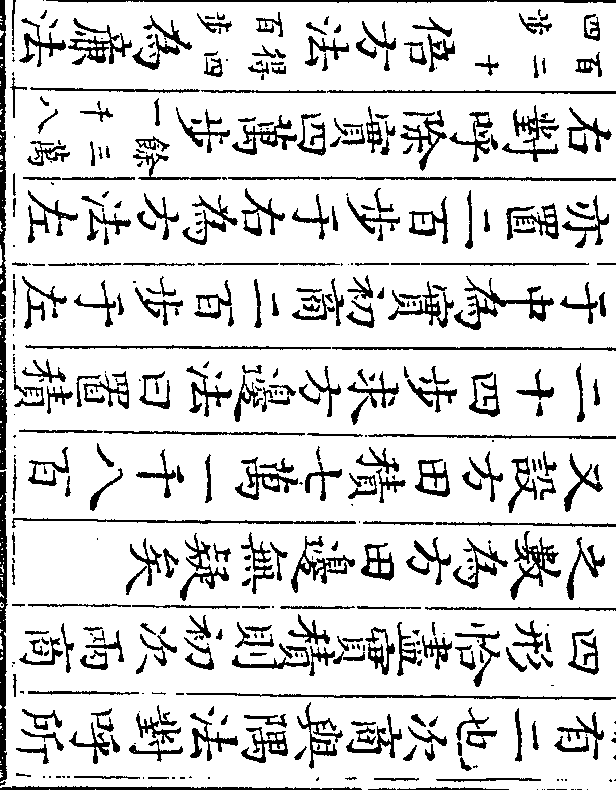 有二也次商與隅法對呼所
四形恰盡實積則初次兩商
之數為方田邊無疑矣
又設方田積七萬一千八百
二十四步求方邊法曰置積
于中為實初商二百步于左
亦置二百步于右為方法左
右對呼除實四萬步餘三萬一千八
百二十四步倍方法得四百步為廉法